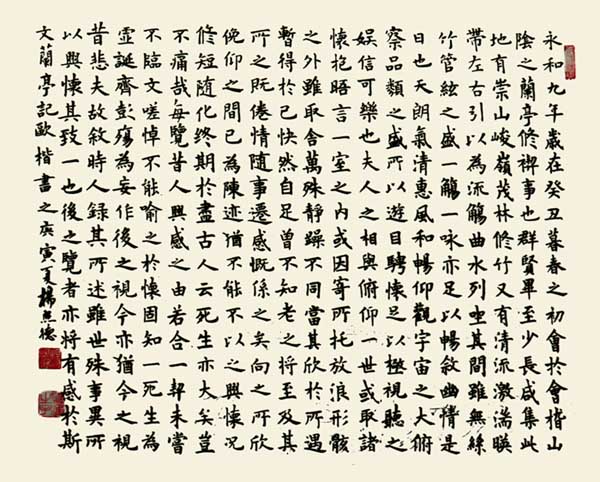 永和九年歲在癸丑暮春之初會於會稽山
陰之蘭亭修禊事也群賢畢至少長咸集此
地有崇山峻嶺茂林修竹又有清流激湍暎
帶左右引以為流觴曲水列坐其間雖無絲
竹管絃之盛一觴一咏亦足以暢敘幽情是
日也天朗氣清惠風和暢仰觀宇宙之大俯
察品類之盛所以遊目騁懷足以極視聽之
娛信可樂也夫人之相與俯仰一世或取諸
懷抱晤言一室之內或因寄所托放浪形骸
之外雖取舍萬殊靜躁不同當其欣於所遇
暫得於己快然自足曾不知老之將至及其
所之既倦情隨事遷感慨係之矣向之所欣
俛仰之間已為陳迹猶不能不以之興懷況
修短隨化終期於盡古人云死生亦大矣豈
不痛哉每覽昔人興感之由若合一契未嘗
不臨文嗟悼不能喻之於懷固知一死生為
虛誕齊彭殤為妄作後之視今亦猶今之視
昔悲夫故敘時人錄其所述雖世殊事異所
以興懷其致一也後之覽者亦將有感於斯
文蘭亭記歐楷書之庚寅夏楊德